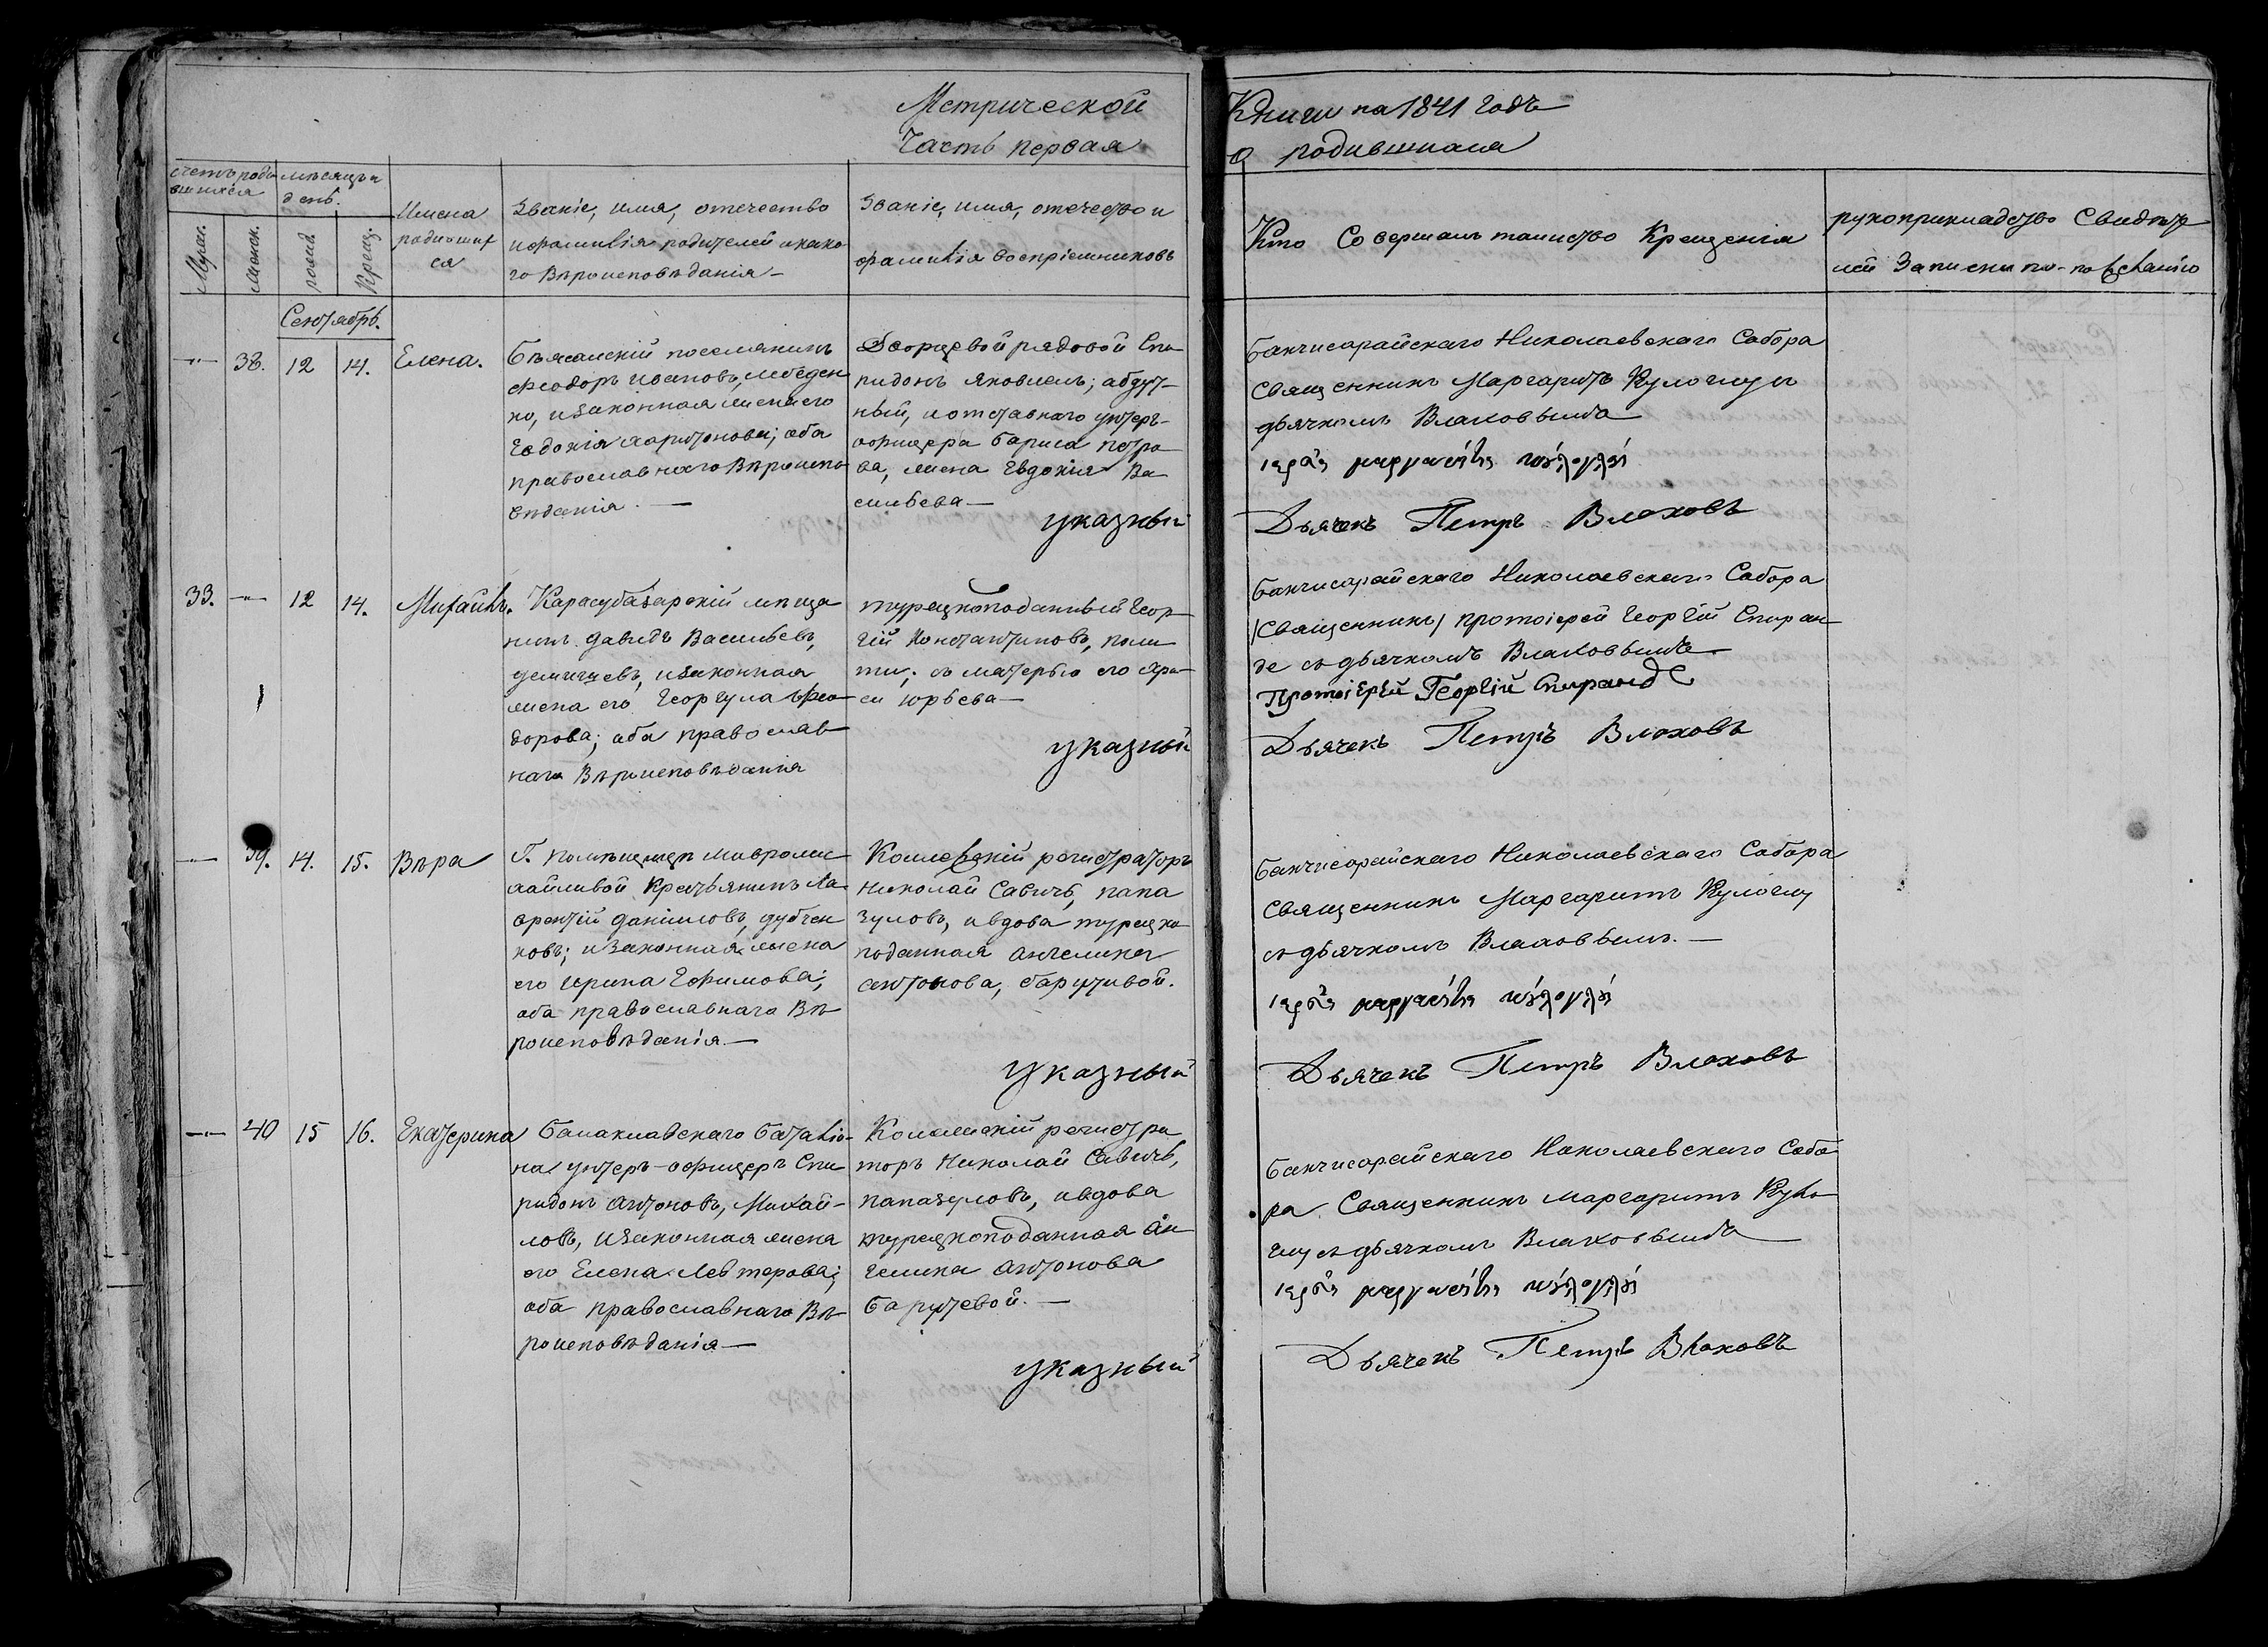 Метрической
Часть первая
Книги на 1841 годъ
о родившихся
счетъ роди
вшихся
мѣсяцъ и
день.
Мужес.
женск.
рожд.
Крещ.
Имена
родивших
ся
Званіе, имя, отечество
и фамилія родителей и како
го Вѣроисповѣданія —
Званіе, имя, отечество и
фамилія воспріемниковъ
Кто Совершалъ таинство Крещенія
рукоприкладство Свидѣте
лей Записки по-
Сентябрь.
—"— 38. 12 14. Елена.
поселянинъ
Феодоръ Ивановъ, лебеден
ко, и законная жена его
Евдокія Харитонова; оба
православнаго Вѣроиспо
вѣданія. —
Дворцевой рядовой Спи
ридонъ Яковлевъ;
ный, и отставнаго унтеръ-
офицера Бориса Петро
ва, жена Евдокія Ва
сильева —
указный
Бахчисарайскаго Николаевскаго Собора
Священникъ Маргаритъ Кулоглу и
дьячкомъ Влаховымъ
Дьячекъ Петръ Влаховъ
33. —"— 12 14. Михаилъ.
Карасубазарскій мѣща
нинъ Давидъ Васильевъ,
и законная
жена его Георгула Фео
дорова; оба православ
наго Вѣроисповѣданія
турецкоподанный Геор
гій Константиновъ, поли
ти; съ матерью его Хри
си Юрьева —
указный
Бахчисарайскаго Николаевскаго Собора
/Священникъ/ протоіерей Георгій Спиран
де съ дьячкомъ Влаховымъ
Протоіерей Георгій Спиранде
Дьячекъ Петръ Влаховъ
—"— 39. 14. 15. Вѣра
Г. помѣщицы Мавроми
хайливой Крестьянинъ Ла
врентій Даниловъ, дубчен
ковъ; и законная жена
его Ирина Ефимова;
оба православнаго Вѣ
роисповѣданія. —
Коллежскій регистраторъ
Николай Савичъ, папа
зуловъ, и вдова турецко
поданная Ангелина
Антонова, барутивой.
указный
Бахчисарайскаго Николаевскаго Собора
Священникъ Маргаритъ Кулоглу
съ дьячкомъ Влаховымъ. —
Дьячекъ Петръ Влаховъ
—"— 40 15 16. Екатерина
Балаклавскаго баталіо
на унтеръ-офицеръ Спи
ридонъ Антоновъ, Михай-
ловъ, и законная жена
его Елена Левтерова;
оба православнаго Вѣ
роисповѣданія —
Колежскій регистра
торъ Николай Савичъ,
папазуловъ, и вдова
турецкоподанная Ан
гелина Антонова
барутевой. —
указный
Бахчисарайскаго Николаевскаго Собо
ра Священникъ Маргаритъ Куло
глу съ дьячкомъ Влаховымъ
Дьячекъ Петръ Влаховъ